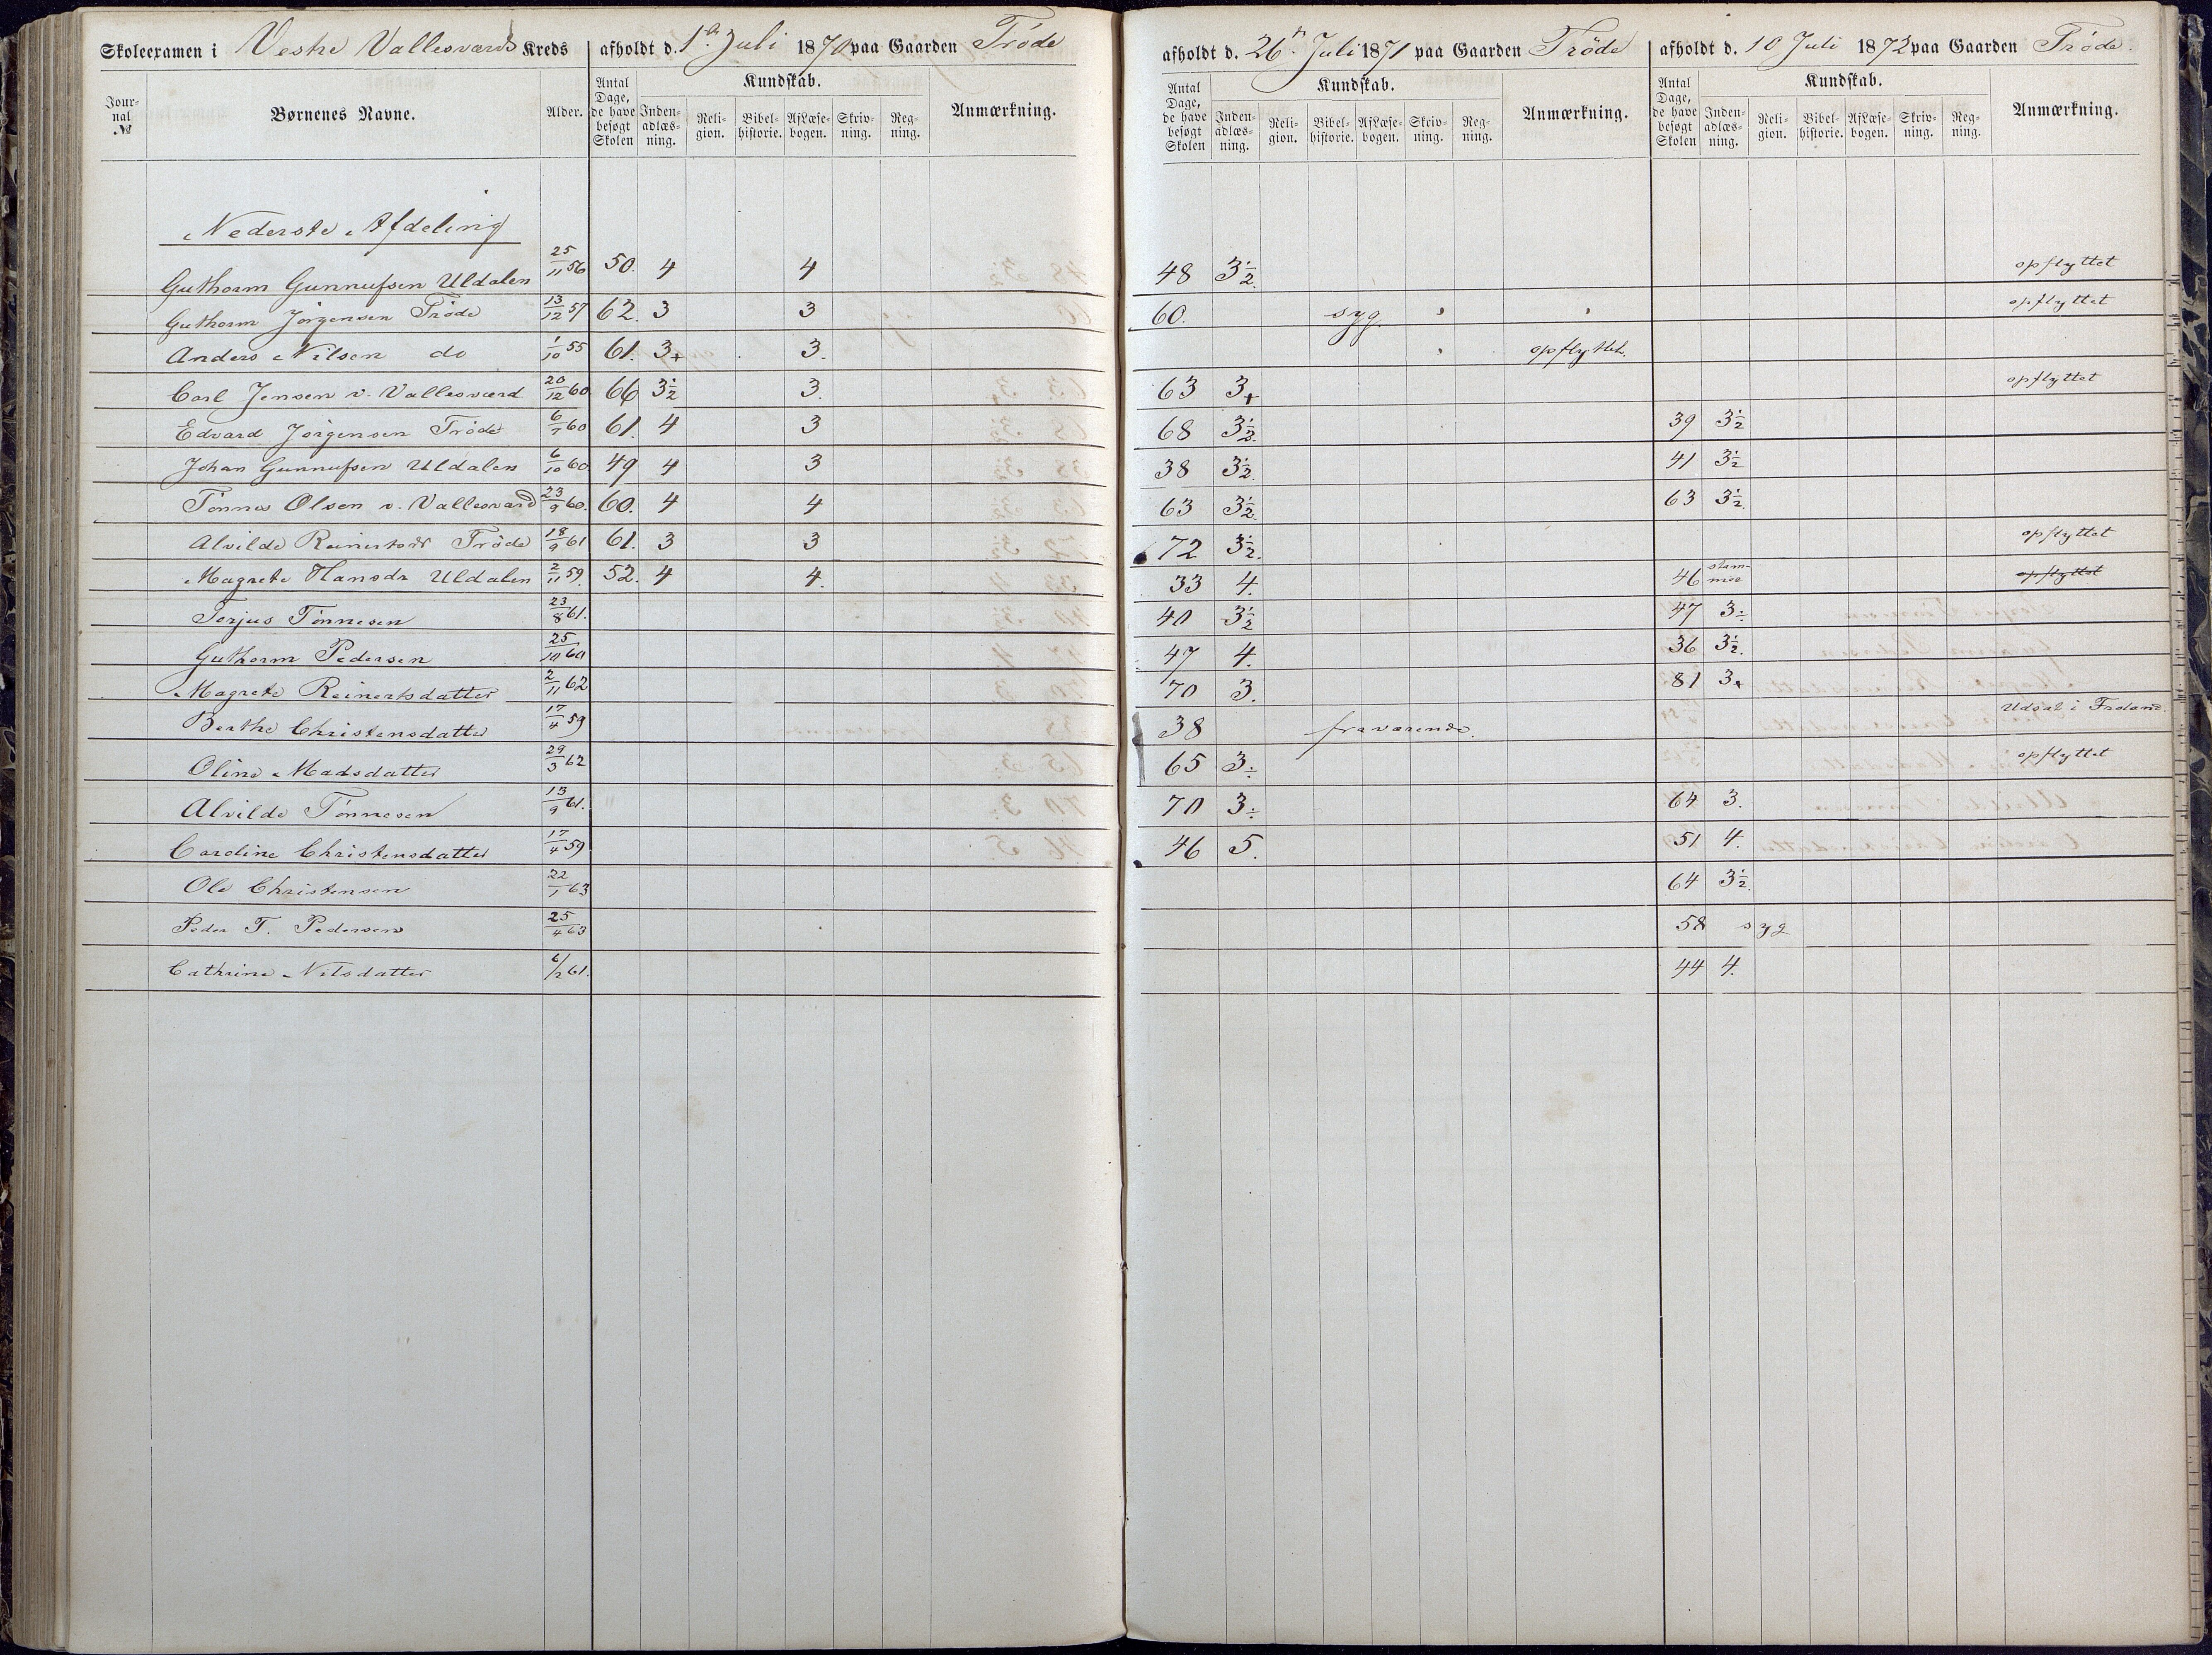 Skoleexamen i Vestre Vallesværds Kreds afholdt d. 1ste Juli 1870 paa Gaarden Trøde
afholdt d. 26de Juli 1871 paa Gaarden Trøde
afholdt d. 10 Juli 1872 paa Gaarden Trøde.
Jour-nal № Børnenes Navne. Alder. Antal Dage, de have besøgt Skolen Kundskab. Inden-adlæs-ning. Reli-gion. Bibel-historie. AfLæse-bogen. Skriv-ning. Reg-ning. Anmærkning.
Antal Dage, de have besøgt Skolen Kundskab. Inden-adlæs-ning. Reli-gion. Bibel-historie. AfLæse-bogen. Skriv-ning. Reg-ning. Anmærkning.
Antal Dage, de have besøgt Skolen Kundskab. Inden-adlæs-ning. Reli-gion. Bibel-historie. AfLæse-bogen. Skriv-ning. Reg-ning. Anmærkning.
Nederste Afdeling
Guthorm Gunnufsen Uldalen 25/11 56 50. 4 4 48 3½. opflyttet
Guthorm Jørgensen Trøde 13/12 57 62. 3 3 60. syg. opflyttet
Anders Nilsen do 1/10 55 61. 3+ 3. opflyttet.
Carl Jensen v. Vallesværd 20/12 60 66 3½ 3. 63 3+ opflyttet
Edvard Jørgensen Trøde 6/7 60 61. 4 3 68 3½. 39 3½
Johan Gunnufsen Uldalen 6/10 60 49 4 3 38 3½. 41 3½
Tønnes Olsen v. Vallesværd 23/9 60. 60. 4 4 63 3½. 63 3½.
Alvilde Reinertsdr Trøde 18/9 61 61. 3 3 72 3½. opflyttet
Magrete Hansdr Uldalen 2/11 59. 52. 4 4. 33 4. 46 stam-mer opflyttet
Torjus Tønnesen 23/8 61. 40 3½ 47 3÷
Guthorm Pedersen 25/10 60 47 4. 36 3½.
Magrete Reinertsdatter 2/11 62 70 3. 81 3+
Berthe Christensdatter 17/4 59 38 fraværende. Udsat i Froland.
Oline Madsdatter 29/3 62 65 3÷ opflyttet
Alvilde Tønnesen 13/9 61. 70 3÷ 64 3.
Caroline Christensdatter 17/4 59 46 5. 51 4.
Ole Christensen 22/1 63 64 3½.
Peder T. Pedersen 25/4 63 58 syg
Cathrine Nilsdatter 6/2 61. 44 4.